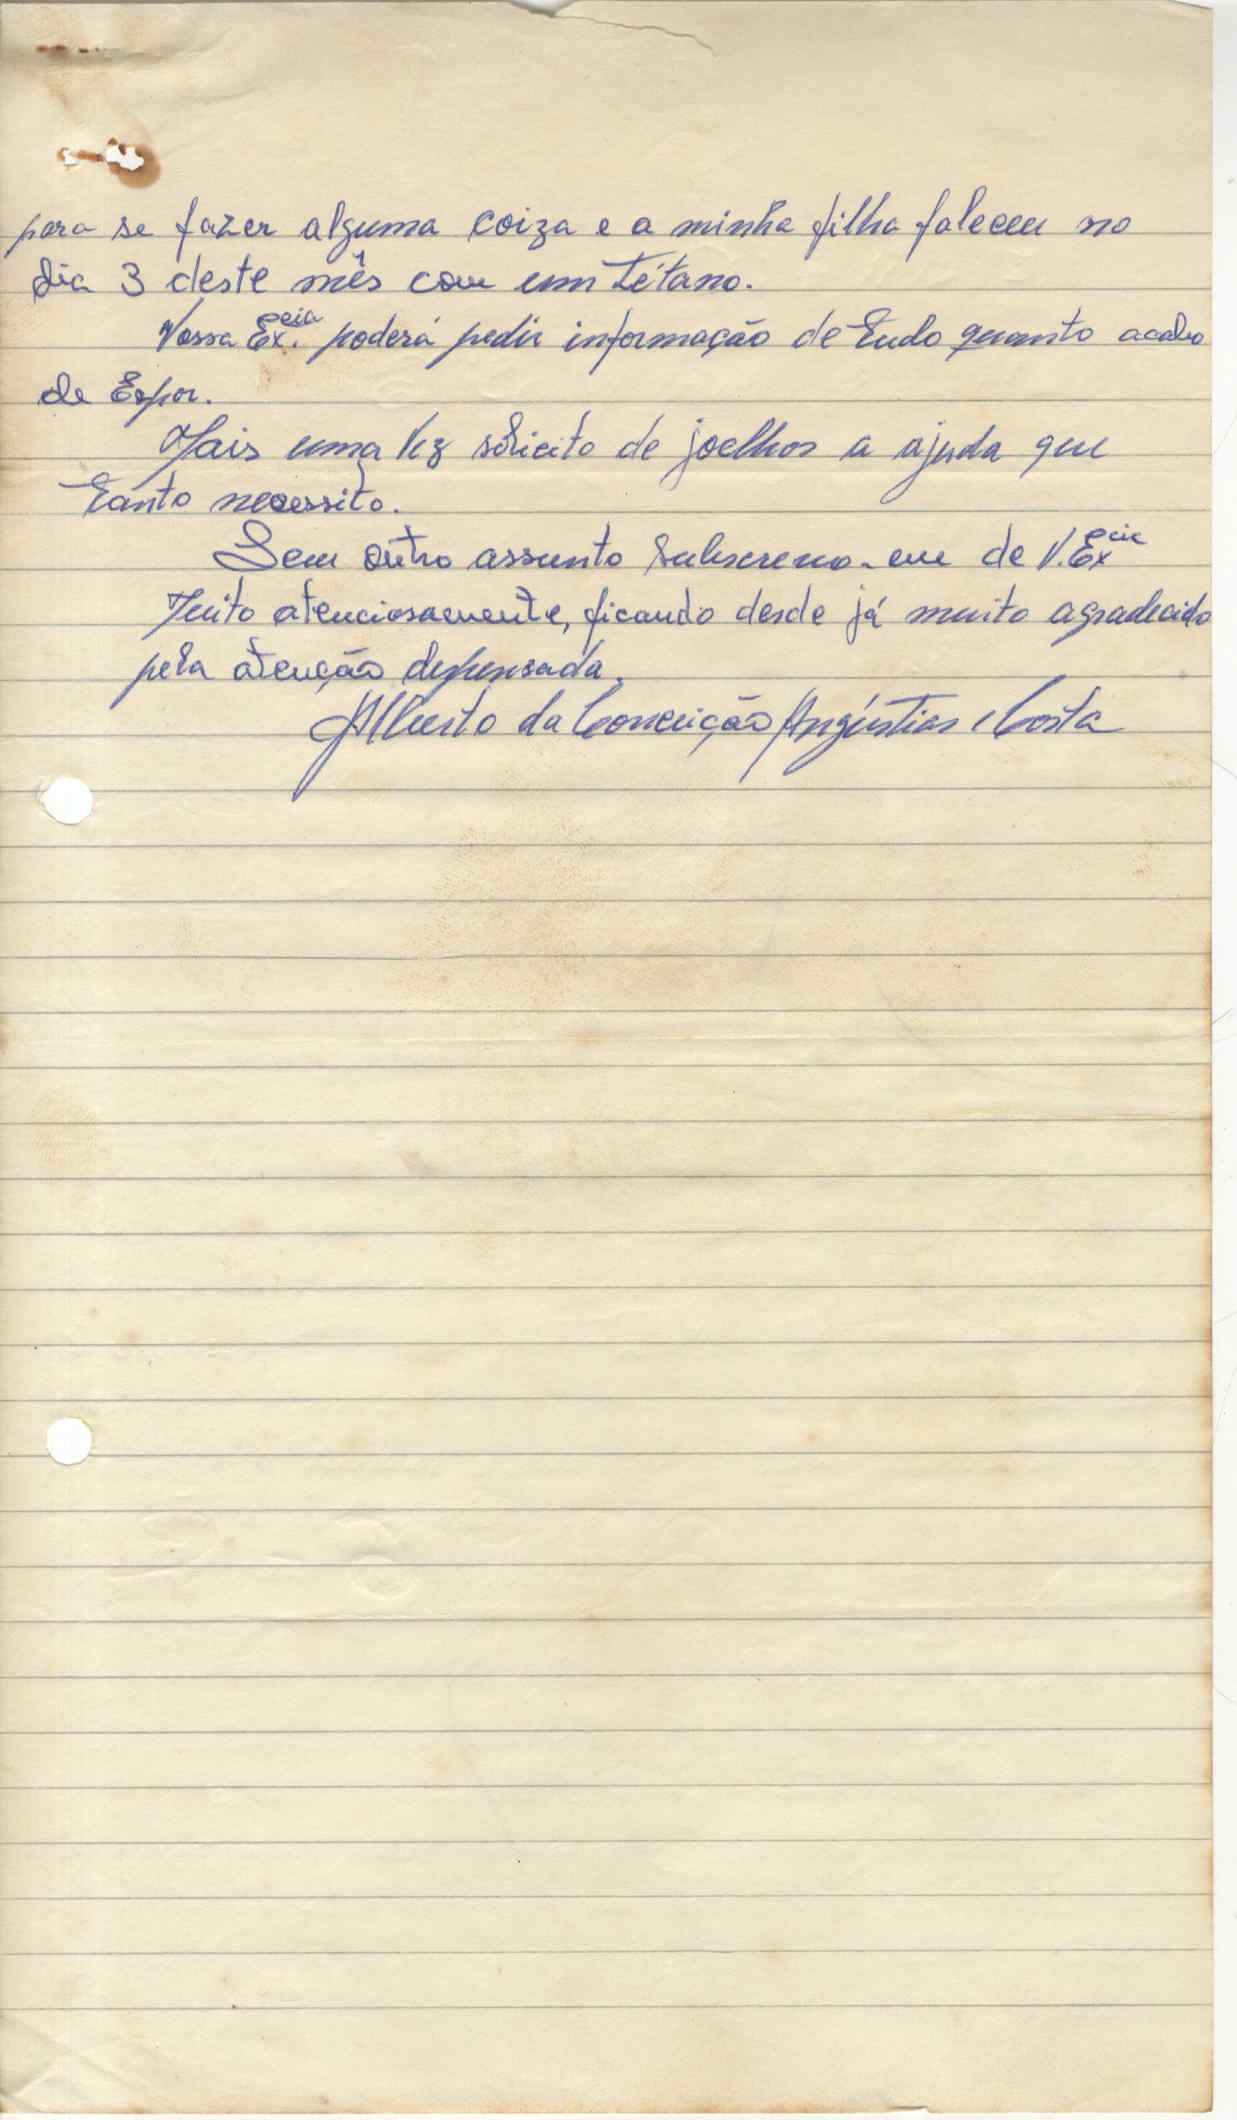 para se fazer alguma coiza e a minha filha faleceu no
dia 3 deste mês com um Tétano.
Vossa Ex.cia poderá pedir informação de tudo quanto acabo
de Expor.
Mais uma vez solicito de joelhos a ajuda que
tanto necessito.
Sem outro assunto subscrevo-me de V. Excia
Muito atenciosamente, ficando desde já muito agradecido
pela atenção despensada.
Alberto da Conceição Angústias Costa